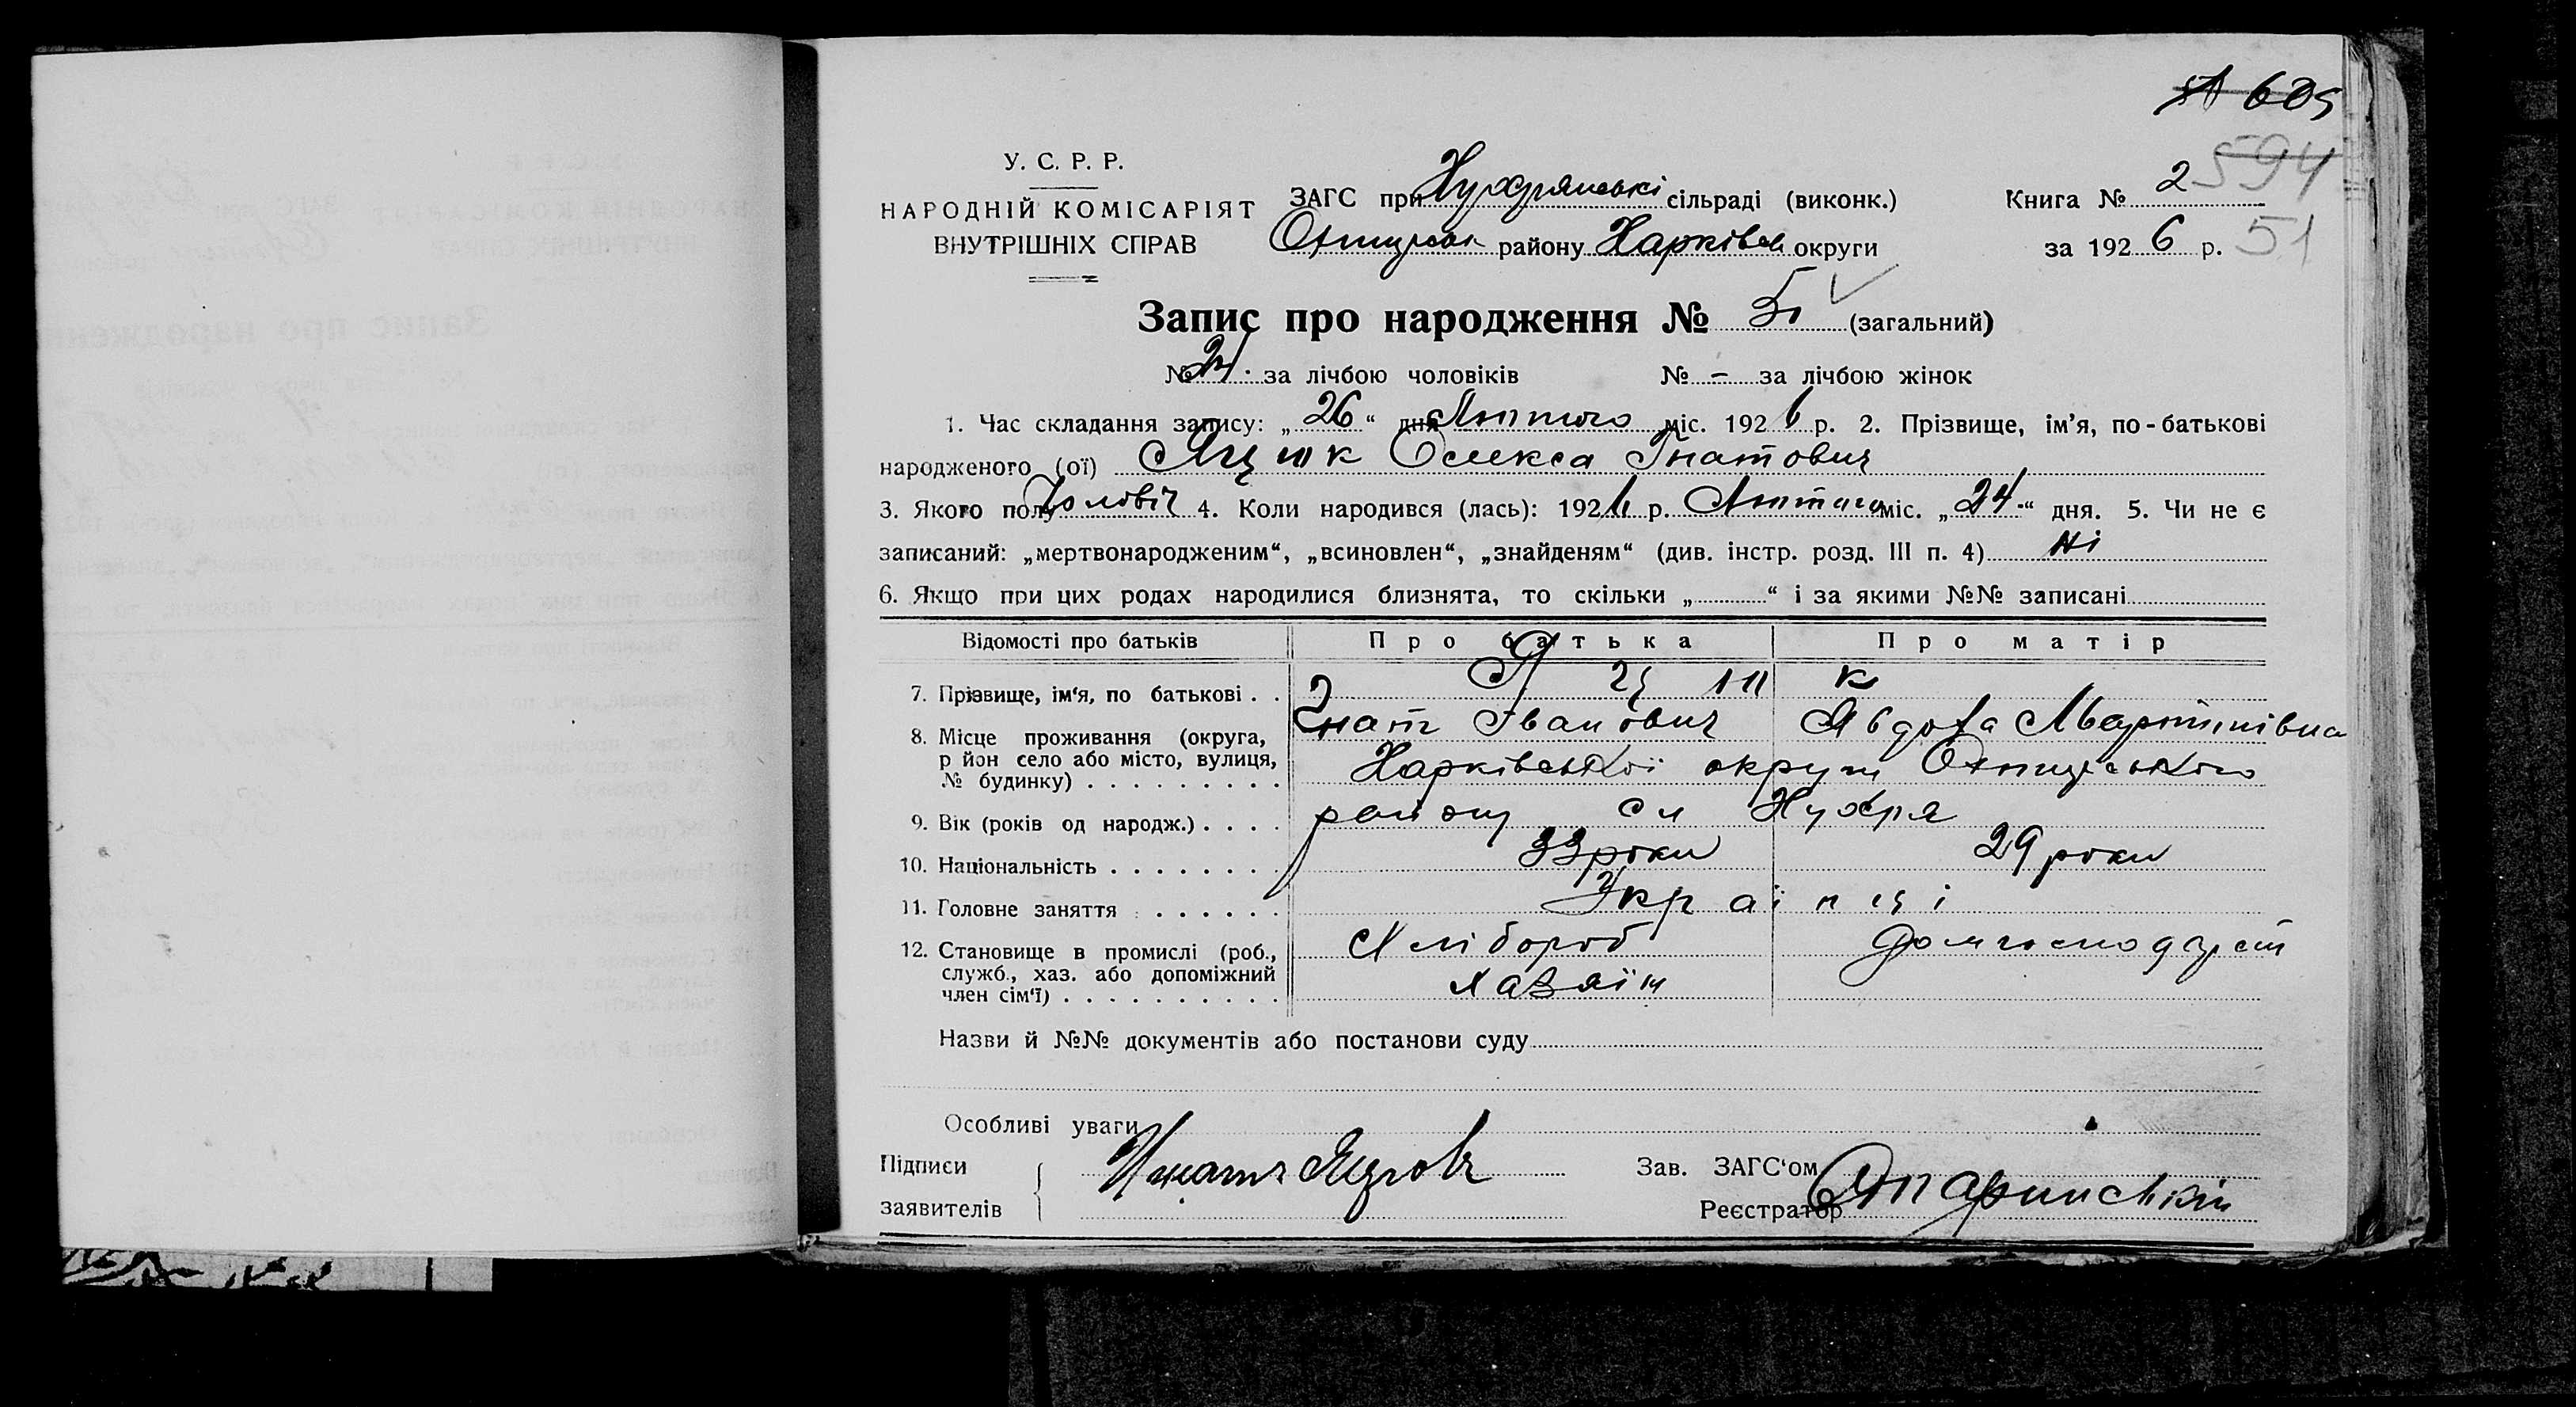 605
594
У. С. Р. Р.
НАРОДНІЙ КОМІСАРІЯТ
ВНУТРІШНІХ СПРАВ
ЗАГС при сільраді (виконк.)
району Харківськ округи
Книга № 2
за 1926 р. 51
Запис про народження № 51 (загальний)
№ за лічбою чоловіків № - за лічбою жінок
1. Час складання запису: „26“ дня Лютого міс. 1926 р. 2. Прізвище, ім'я, по-батькові
народженого (ої) Яцюк Олекса Гнатович
3. Якого полу Чоловіч 4. Коли народився (лась): 1926 р. Лютого міс. „24“ дня. 5. Чи не є
записаний: „мертвонародженим“, „всиновлен“, „знайденям“ (див. інстр. розд. III п. 4) Ні
6. Якщо при цих родах народилися близнята, то скільки „ “ і за якими №№ записані
Відомості про батьків Про батька Про матір
7. Прізвище, ім'я, по батькові . . Яцюк
Гнат Іванович Явдоха Мартинівна
8. Місце проживання (округа,
р йон село або місто, вулиця,
№ будинку) . . . . . . . . .
Харківської округи Охтирського
району сл
9. Вік (років од народж.) . . . .
33 роки 29 роки
10. Національність . . . . . . . .
Українці
11. Головне заняття . . . . . . .
Хлібороб Домгосподарст
12. Становище в промислі (роб.,
служб., хаз. або допоміжний
член сім'ї) . . . . . . . . . .
Хазяїн
Назви й №№ документів або постанови суду
Особливі уваги
Підписи
заявителів
Зав. ЗАГС'ом
Реєстратор